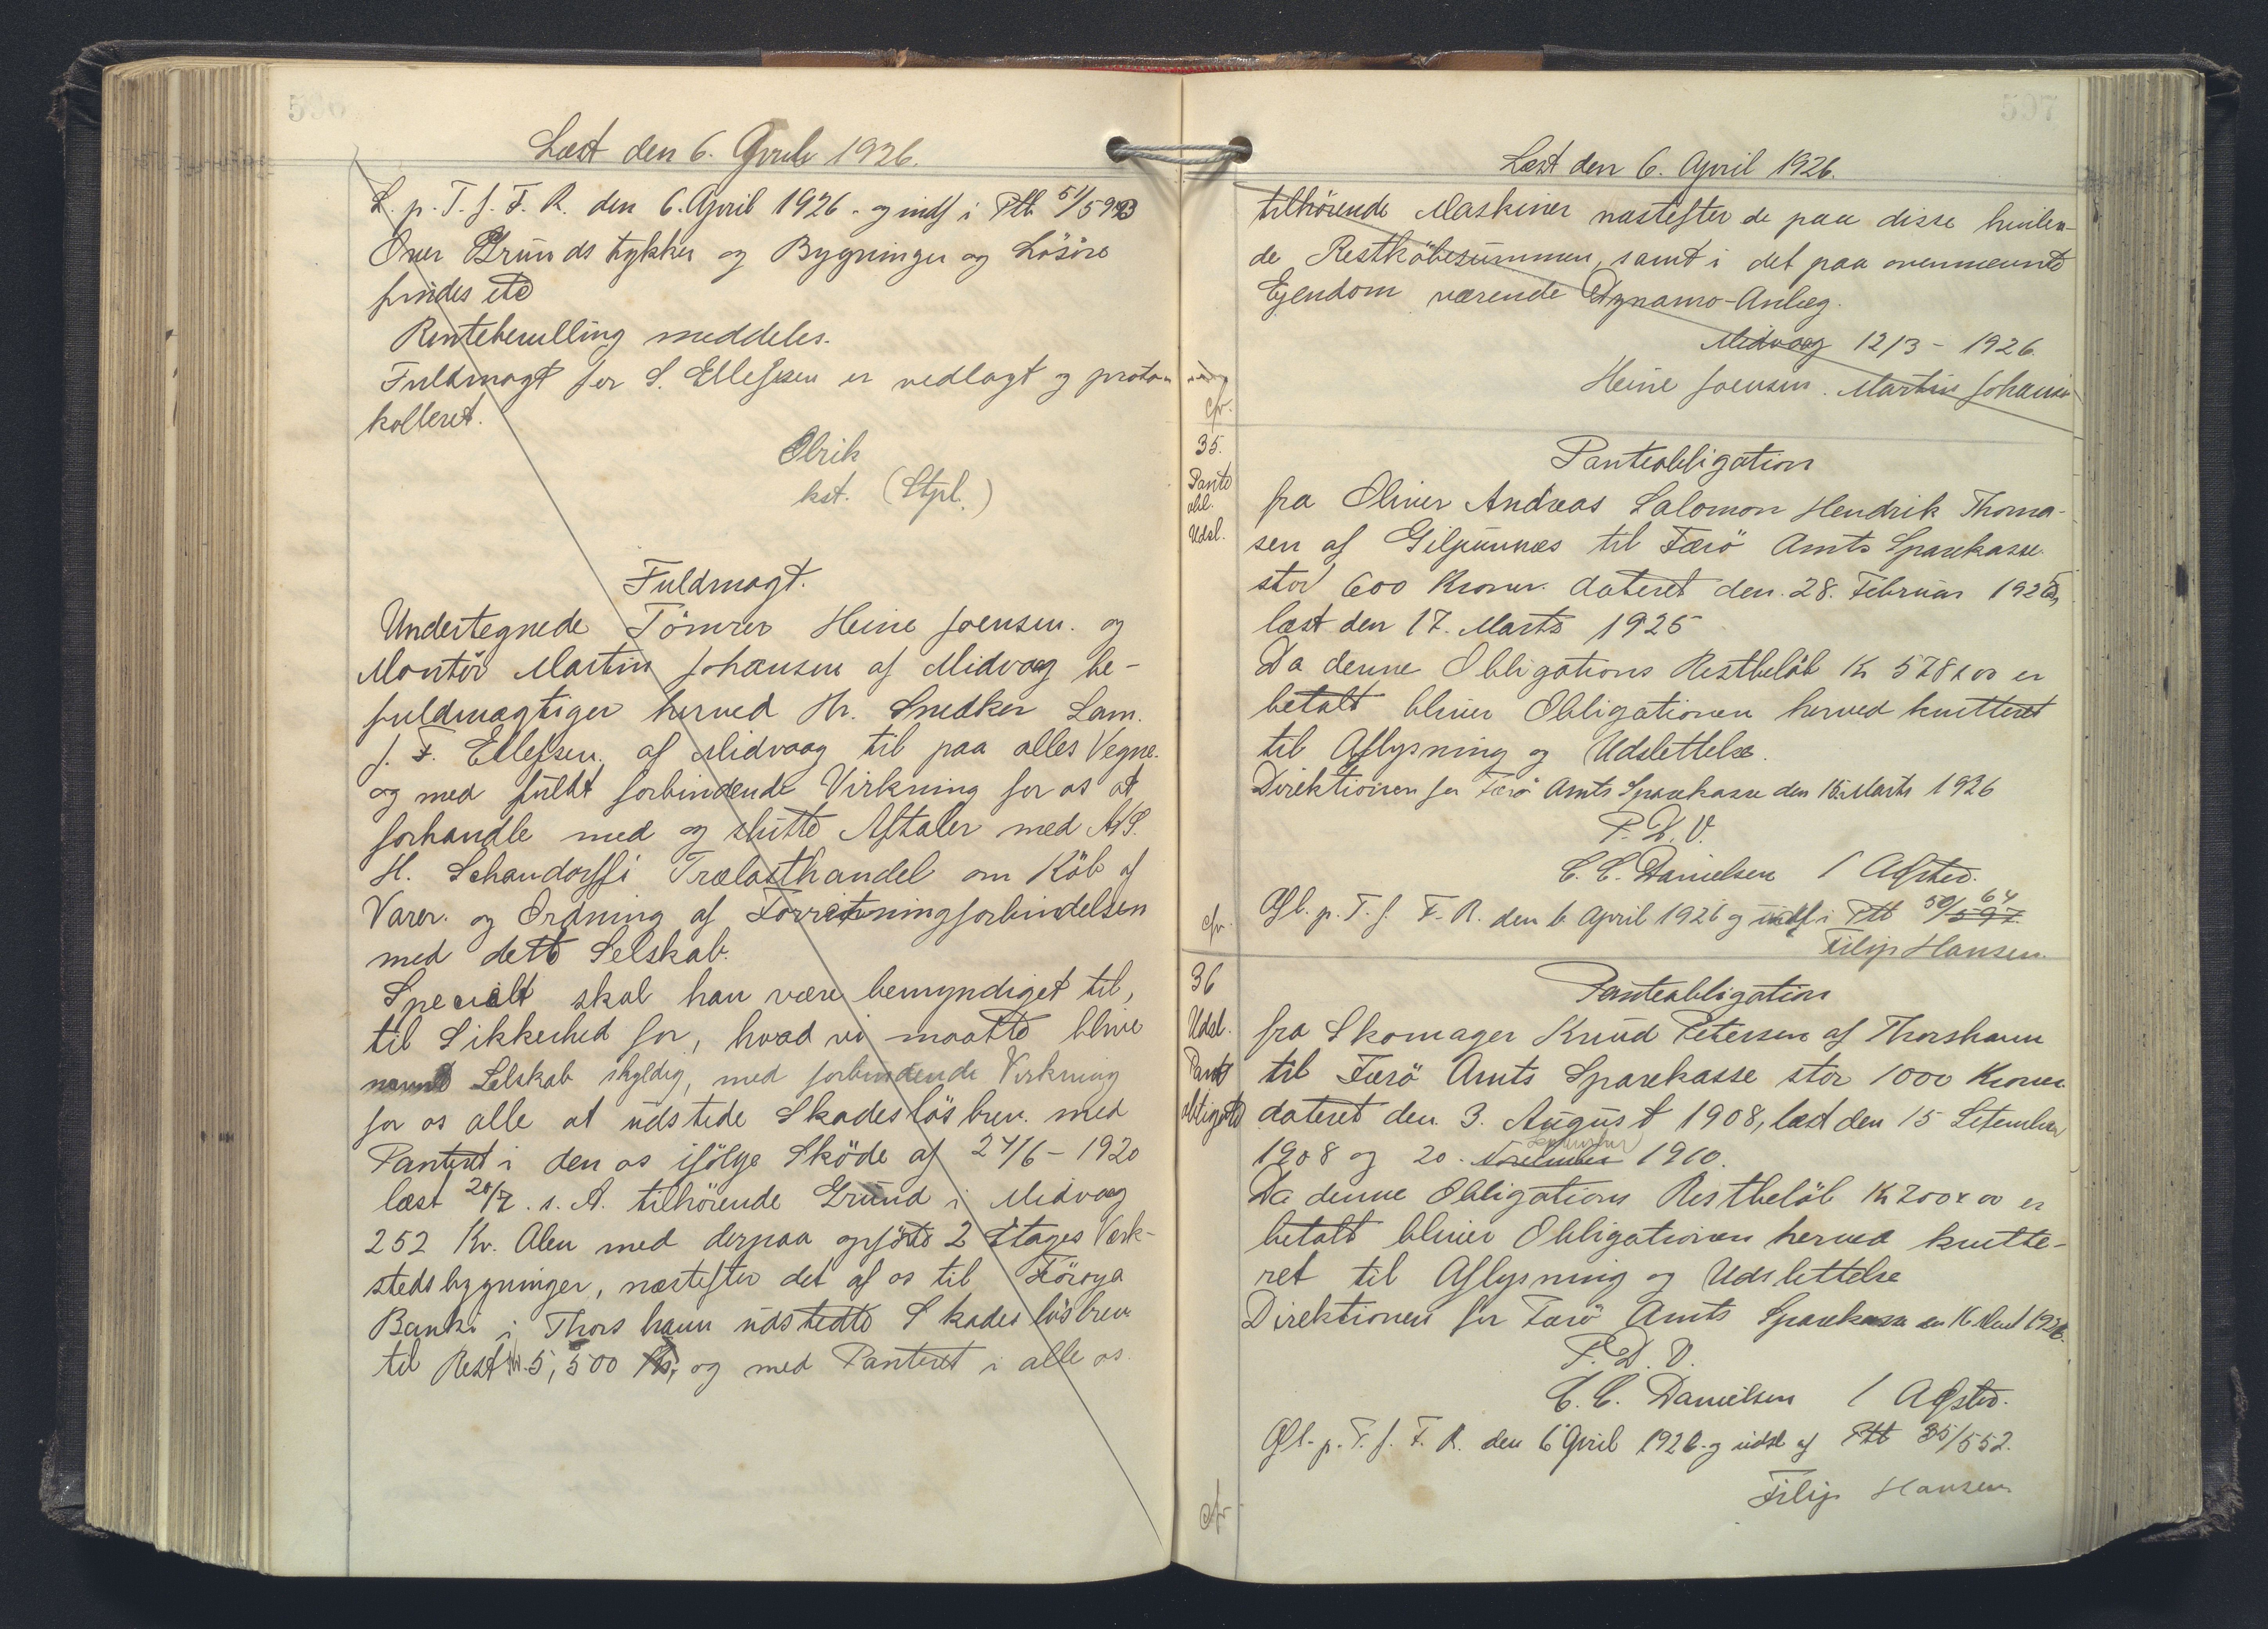 596
Læst den 6. April 1926.
L. p. T. f. F. R. den 6. April 1926 - og indf i Ptb 51/593
Over Grundstykker og Bygninger og Lösöre
findes etc
Rentebevilling meddeles.
Fuldmagt for S. Ellefsen er vedlagt og proto-
kolleret.
Olrik
kst. (Stpl.)
Fuldmagt.
Undertegnede Tömrer Heine Joensen. og
Montör Martin Johansen af Midvaag be-
fuldmægtiger herved Hr. Snedker Sam.
J. F. Ellefsen. af Midvaag til paa alles Vegne.
og med fuldt forbindende Virkning for os at
forhandle med og slutte Aftaler med A/S.
H. Schandorffs Trælasthandel om Köb af
Varer. og Ordning af Forretningforbindelsen
med dette Selskab.
Specielt skal han være bemyndiget til,
til Sikkerhed for, hvad vi maatte blive
nævnte Selskab skyldig, med forbindende Virkning
for os alle at udstede Skadeslösbrev. med
Panteret i den os ifölge Sköde af 24/6 - 1920
læst 20/7. s. A. tilhörende Grund i Midvaag
252 Kv. Alen med derpaa opförte 2 Etages Værk-
stedsbygninger, næstefter det af os til Föroya
Banki i Thorshavn udstedte Skadeslösbrev
til Rest kr. 5,500 Kr, og med Panteret i alle os
597
Læst den 6. April 1926.
tilhörende Maskiner næstefter de paa disse hvilen-
de Restköbesummer, samt i det paa ovennævnte
Ejendom værende Dynamo-Anlæg.
Midvaag 12/3 - 1926.
Heine Joensen. Martin Johansen
cfr.
35.
Pante
obl.
Udsl.
Panteobligation
fra Oliver Andreas Salomon Hendrik Thoma-
sen af Giljunnes til Færö Amts Sparekasse
stor 600 Kroner. dateret den. 28. Februar 1925,
læst den 17. Marts 1925
Da denne Obligations Restbelöb Kr 578x00 er
betalt bliver Obligationen herved kvitteret
til Aflysning og Udslettelse.
Direktionen for Færö Amts Sparekasse den 15. Marts 1926
P. D. V.
C. C. Danielsen / Agsted.
cfr. Afl. p. T. f. F. R. den 6 April 1926 og indf i Ptb 50/597 64
Filip Hansen.
36
Udsl.
Pante
obligat
Panteobligation
fra Skomager Knud Petersen af Thorshavn
til Færö Amts Sparekasse stor 1000 Kroner
dateret den. 3. August 1908, læst den 15 Setember
1908 og 20. November 1910.
September
Da denne Obligations Restbelöb Kr 200x00 er
betalt bliver Obligationen herved kvitte-
ret til Aflysning og Udslettelse
Direktionen for Færö Amts Sparekasse den 16 Mart 1926.
P. D. V.
C. C. Danielsen / Agsted.
Afl. p. T. f. F. R. den 6 April 1926 - og udsl af Ptb 35/552.
Filip Hansen
cfr